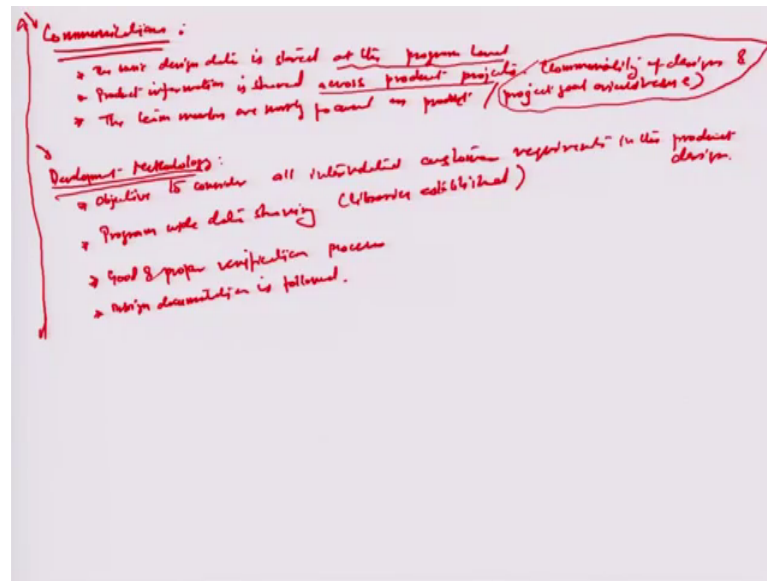 Communications :
* The basic design data is stored at the program level
* Product information is shared across product projects. (Commonality of design &
* The team members are mostly focused on product / project goal orientedness)
Development Methodology :
* Objective to consider all interrelated customer requirements in the product
design.
* Program wide data sharing (libraries established)
* Good & proper verification process
* Design documentation is followed.